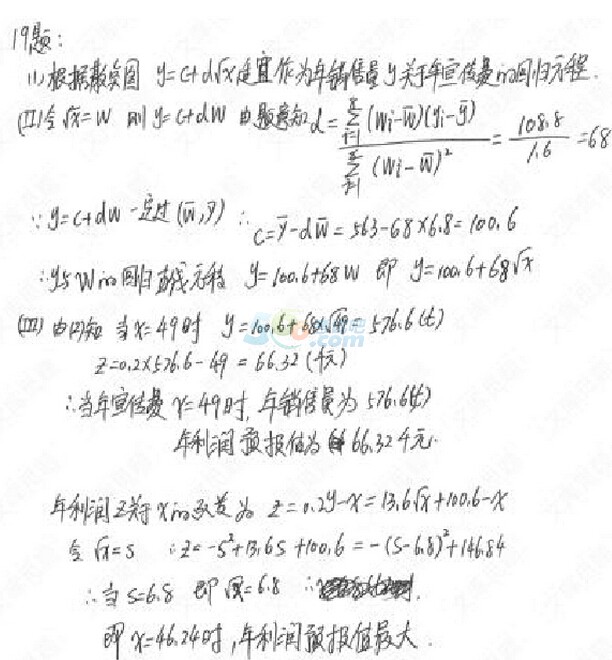 19题:
(I) 根据散点图 y=c+d√x 适宜作为年销售量y关于年宣传费的回归方程.
(II) 令√x=W 则 y=c+dW 由题意知 d=\frac{\sum_{i=1}^{8}(Wi-\bar{W})(yi-\bar{y})}{\sum_{i=1}^{8}(Wi-\bar{W})^2}=\frac{108.8}{1.6}=68
∵y=c+dW 一定过(\bar{W},\bar{y}) ∴ c=\bar{y}-d\bar{W}=563-68×6.8=100.6
∴y与W的回归直线方程 y=100.6+68W 即 y=100.6+68√x
(III) 由(II)知 当x=49时 y=100.6+68×√49=576.6(t)
z=0.2×576.6-49=66.32(千元)
∴当年宣传费x=49时, 年销售量为576.6(t)
年利润预报值为 66.32千元.
年利润z关于x的函数为 z=0.2y-x=13.6√x+100.6-x
令√x=s ∴z=-s²+13.6s+100.6=-(s-6.8)²+146.84
∴当s=6.8 即√x=6.8 ∴
即x=46.24时,年利润预报值最大.